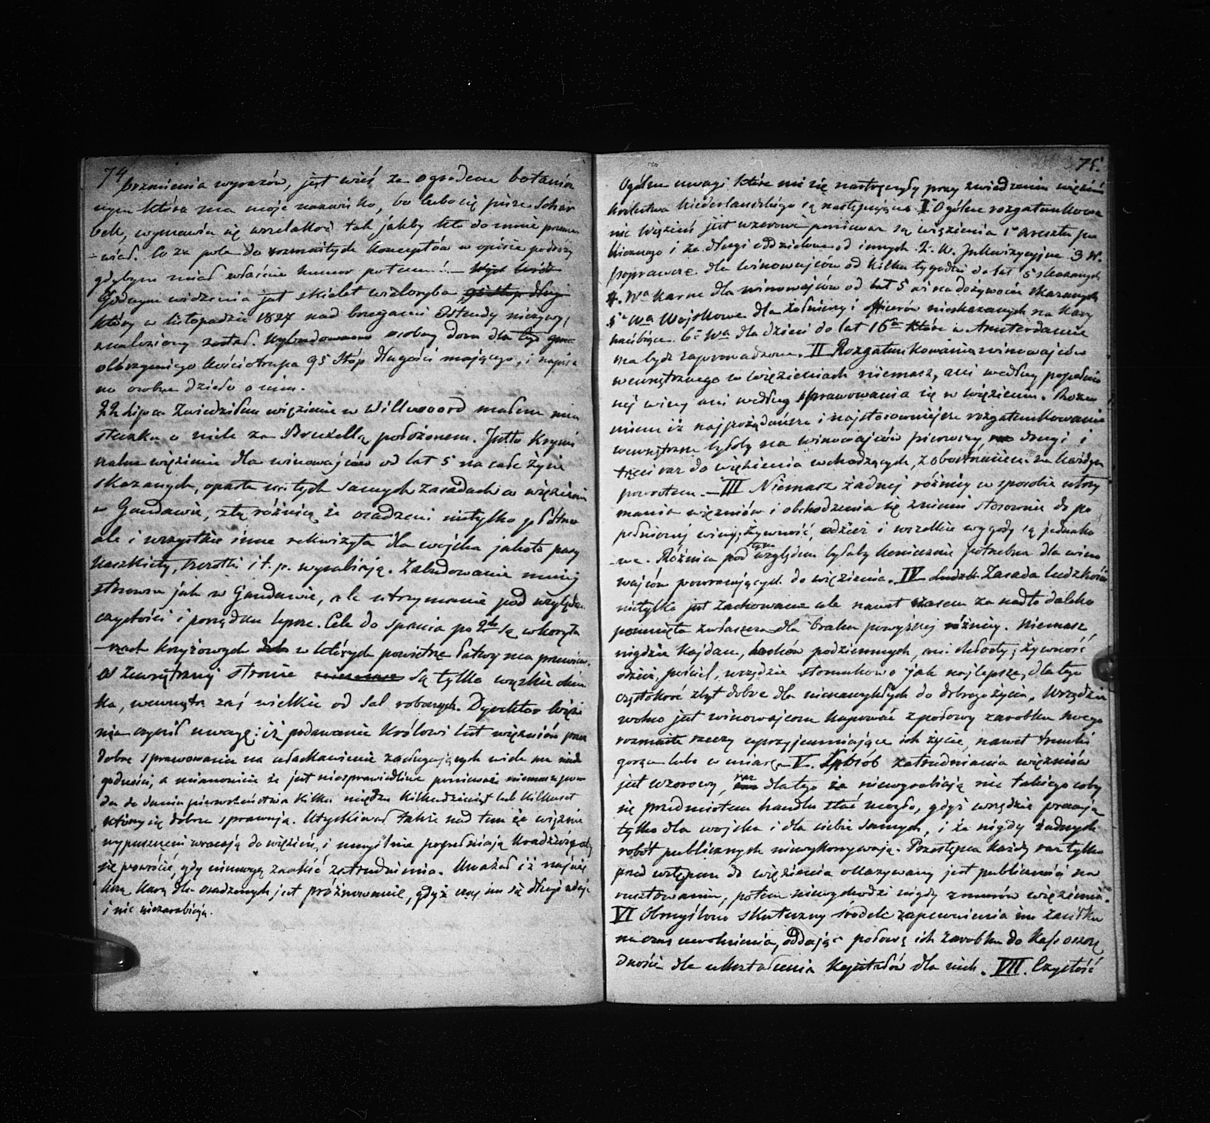 74
brzmienia wyrazów, jest wieś za ogrodem botani
nym która ma moje nazwisko, bo lubo się pisze Schar
bek, wymawia się wszelako tak jakby kto do mnie przemo
wiał. Co za pole do rozmaitych konceptów w opisie podróży
gdybym miał właśnie humor po temu!
Godnym widzenia jest skielet wieloryba
który w listopadzie 1827 nad brzegami Ostendy nieżywy
znaleziony został. Wybudowano osobny dom dla tego
olbrzymiego kościotrupa 95 stóp długości mającego, i napisa
no osobne dzieło o nim.
22 Lipca zwiedziłem więzienie w Willwoord małem mia
steczku o mile za Bruxellą położonem. Jest to krymi
nalne więzienie dla winowajców od lat 5 na całe życie
skazanych, oparte na tych samych zasadach co więzienie
w Gandawie, z tą różnicą że osadzeni nietylko płótno
ale i wszystkie inne rekwizyta dla wojska jakoto pasy
kaszkiety, trzewiki i t. p. wyrabiają. Zabudowanie mniej
stosowne jak w Gandawie, ale utrzymanie pod względem
czystości i porządku lepsze. Cele do spania po 2 są w koryta
rzach krzyżowych w których powietrze łatwy ma przewiew.
Od zewnętrznej stronie są tylko wązkie okien
ka, wewnątrz zaś wielkie od sal robotnych. Dyrektor więzi
nia czynił uwagę iż podawanie Królowi list więźniów przez
dobre sprawowanie na ułaskawienie zasługujących wiele ma nied
godności, a mianowicie że jest niesprawiedliwe ponieważ niema powo
du do dania pierwszeństwa kilku między kilkudziesiąt lub kilkuset
którzy się dobrze sprawują. Utyskiwał także nad tem że więźnie
wypuszczeni wracają do więzień, i umyślnie popełniają kradzież aby
się powrócić, gdy nie mogą znaleźć zatrudnienia. Uważał iż najwię
kszą karą dla osadzonych jest próżnowanie, gdyż czas im się długi zdaje
i nic nie zarabiają.
75.
Ogólne uwagi które mi się nastręczyły przy zwiedzeniu więzień
królestwa Niederlandzkiego są następujące I Ogólne rozgatunkowa
nie więzień jest wzorowe ponieważ są więzienia 1° Areszta po
licyjne i za długi oddzielone od innych 2. W. Inkwizycyjne 3 W.
poprawcze dla winowajców od kilku tygodni do lat 5 skazanych
4. Wa karne dla winowajców od lat 5 aż na dożywocie skazanych
5° Wa Wojskowe dla żołnierzy i officerów nieskazanych na kary
hańbiące. 6° Wa dla dzieci do lat 16 które w Amsterdamie
ma być zaprowadzone. II Rozgatunkowania winowajców
wewnętrznego w więzieniach niemasz, ani według popełnio
nej winy ani według sprawowania się w więzieniu. Rozu
miem iż najpożądańsze i najstosowniejsze rozgatunkowanie
wewnętrzne byłoby na winowajców pierwszy drugi i
trzeci raz do więzienia wchodzących, z obostrzeniem za każdym
powrotem. — III Niemasz żadnej różnicy w sposobie utrzy
mania więźniów i obchodzenia się z niemi stosownie do po
pełnionej winy; żywność, odzież i wszelkie wygody są jednako
we. Różnica pod tym względem byłaby koniecznie potrzebna dla wino
wajców powracających do więzienia. IV Zasada ludzkości
nietylko jest zachowana ale nawet czasem za nadto daleko
pomknięta zwłaszcza dla braku powyższej różnicy. Niemasz
nigdzie kajdan, lochów podziemnych, ani chłosty; żywność
odzież, pościel, wszędzie stosunkowo jak najlepsze, dla tych
czystokroć zbyt dobre dla nienawykłych do dobrego życia. Wszędzie
wolno jest winowajcom kupować z połowy zarobku swego
rozmaite rzeczy uprzyjemniające ich życie, nawet trunki
gorące lubo w miarę. V. Sposób zatrudniania więźniów
jest wzorowy, raz dla tego że niewyrabiają nic takiego coby
się przedmiotem handlu stać mogło, gdyż wszędzie pracują
tylko dla wojska i dla siebie samych, i że nigdy żadnych
robót publicznych niewykonywają. Przestępca każdy raz tylko
przed wstępem do więzienia okazywany jest publiczności na
rusztowaniu, potem niewychodzi nigdy z murów więzienia.
VI Obmyślono skuteczny środek zapewnienia im zasiłku
na czas uwolnienia, oddając połowę ich zarobku do Kass oszczę
dności dla ukształcenia kapitałów dla nich. VII. Czystość